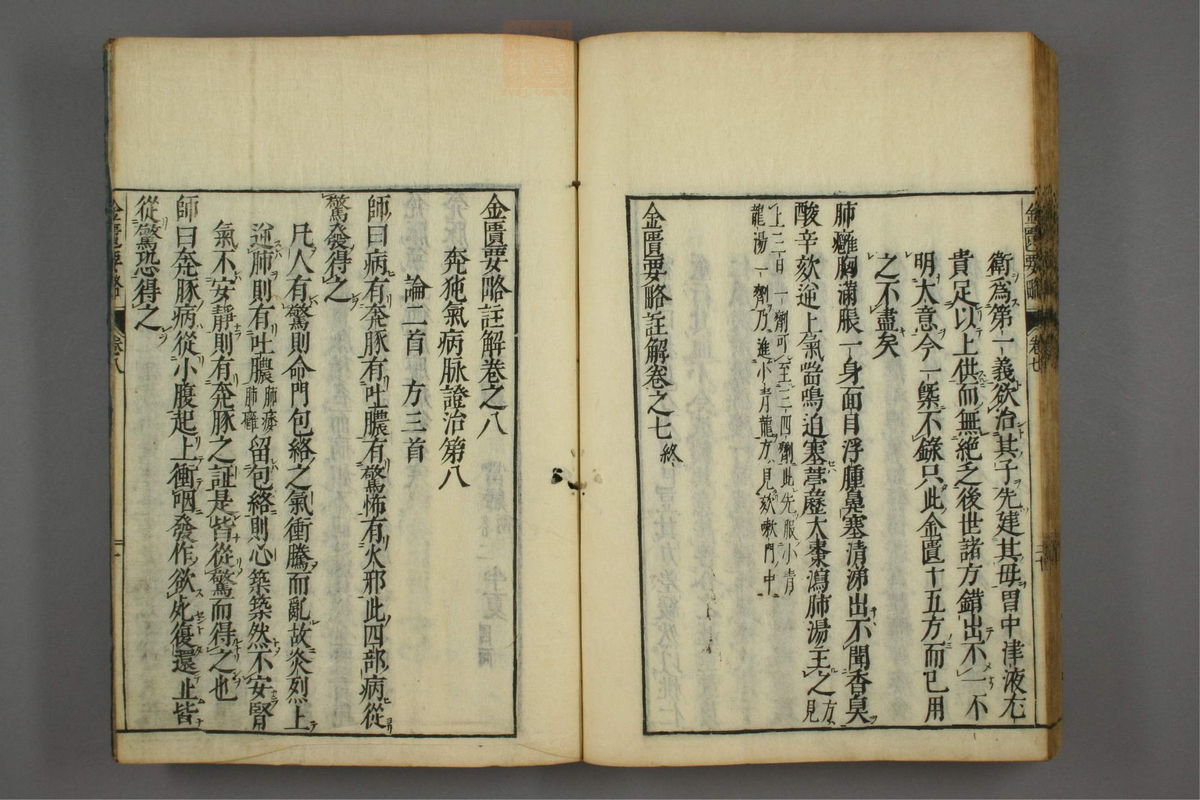 金匱要略
卷七
衛爲第一義欲治其子先建其毋胃中津液充
貴足以上供而無絶乏後世諸方錯出不一不
明大意今一槩不錄只此金匱十五方而已用
之不盡矣
肺癰胸滿脹一身面目浮腫鼻塞清涕出不聞香臭
酸辛欬逆上氣喘鳴迫塞葶藶大棗瀉肺湯主之方見
上三日一劑可至三四劑此先服小青
龍湯一劑乃進小青龍方見欬嗽門中
金匱要略註解卷之七終
金匱要略註解卷之八
奔㹠氣病脉證治第八
論二首 方三首
師曰病有奔豚有吐膿有驚怖有火邪此四部病從
驚發得之
凡人有驚則命門包絡之氣衝騰而亂故炎烈上
逆肺則有吐膿肺痿肺癰留包絡則心築築然不安腎
氣不安靜則有奔豚之証是皆從驚而得之也
師曰奔豚病從小腹起上衝咽發作欲死復還止皆
從驚恐得之
金匱要略
卷八
一